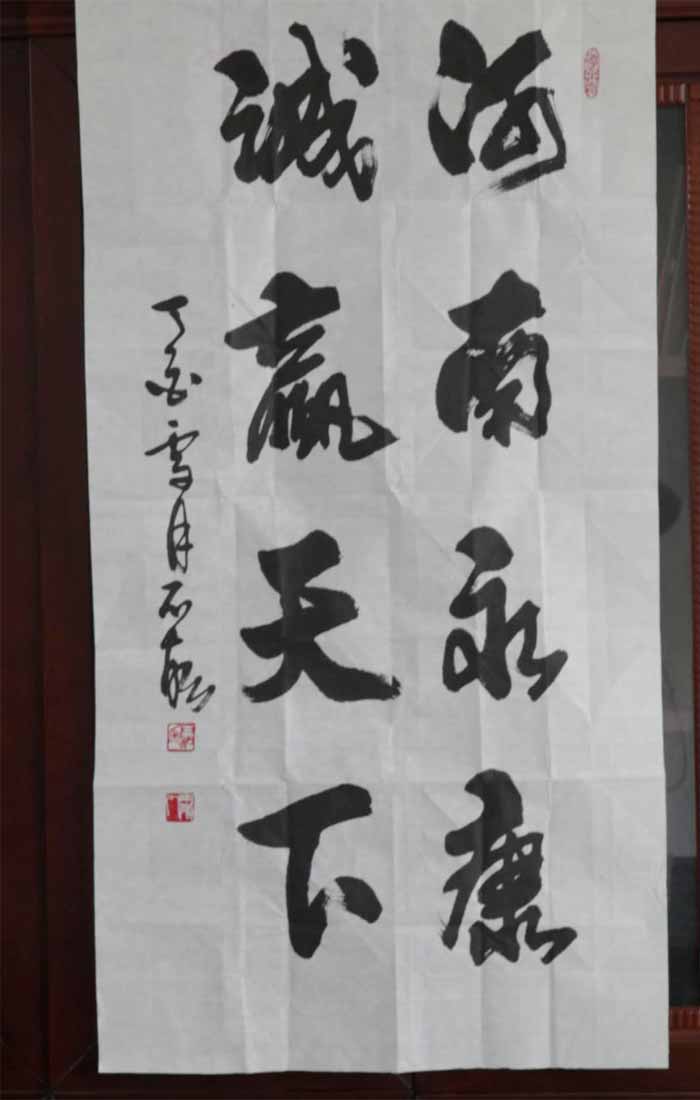 河南永康
诚赢天下
丁酉雪月石毅